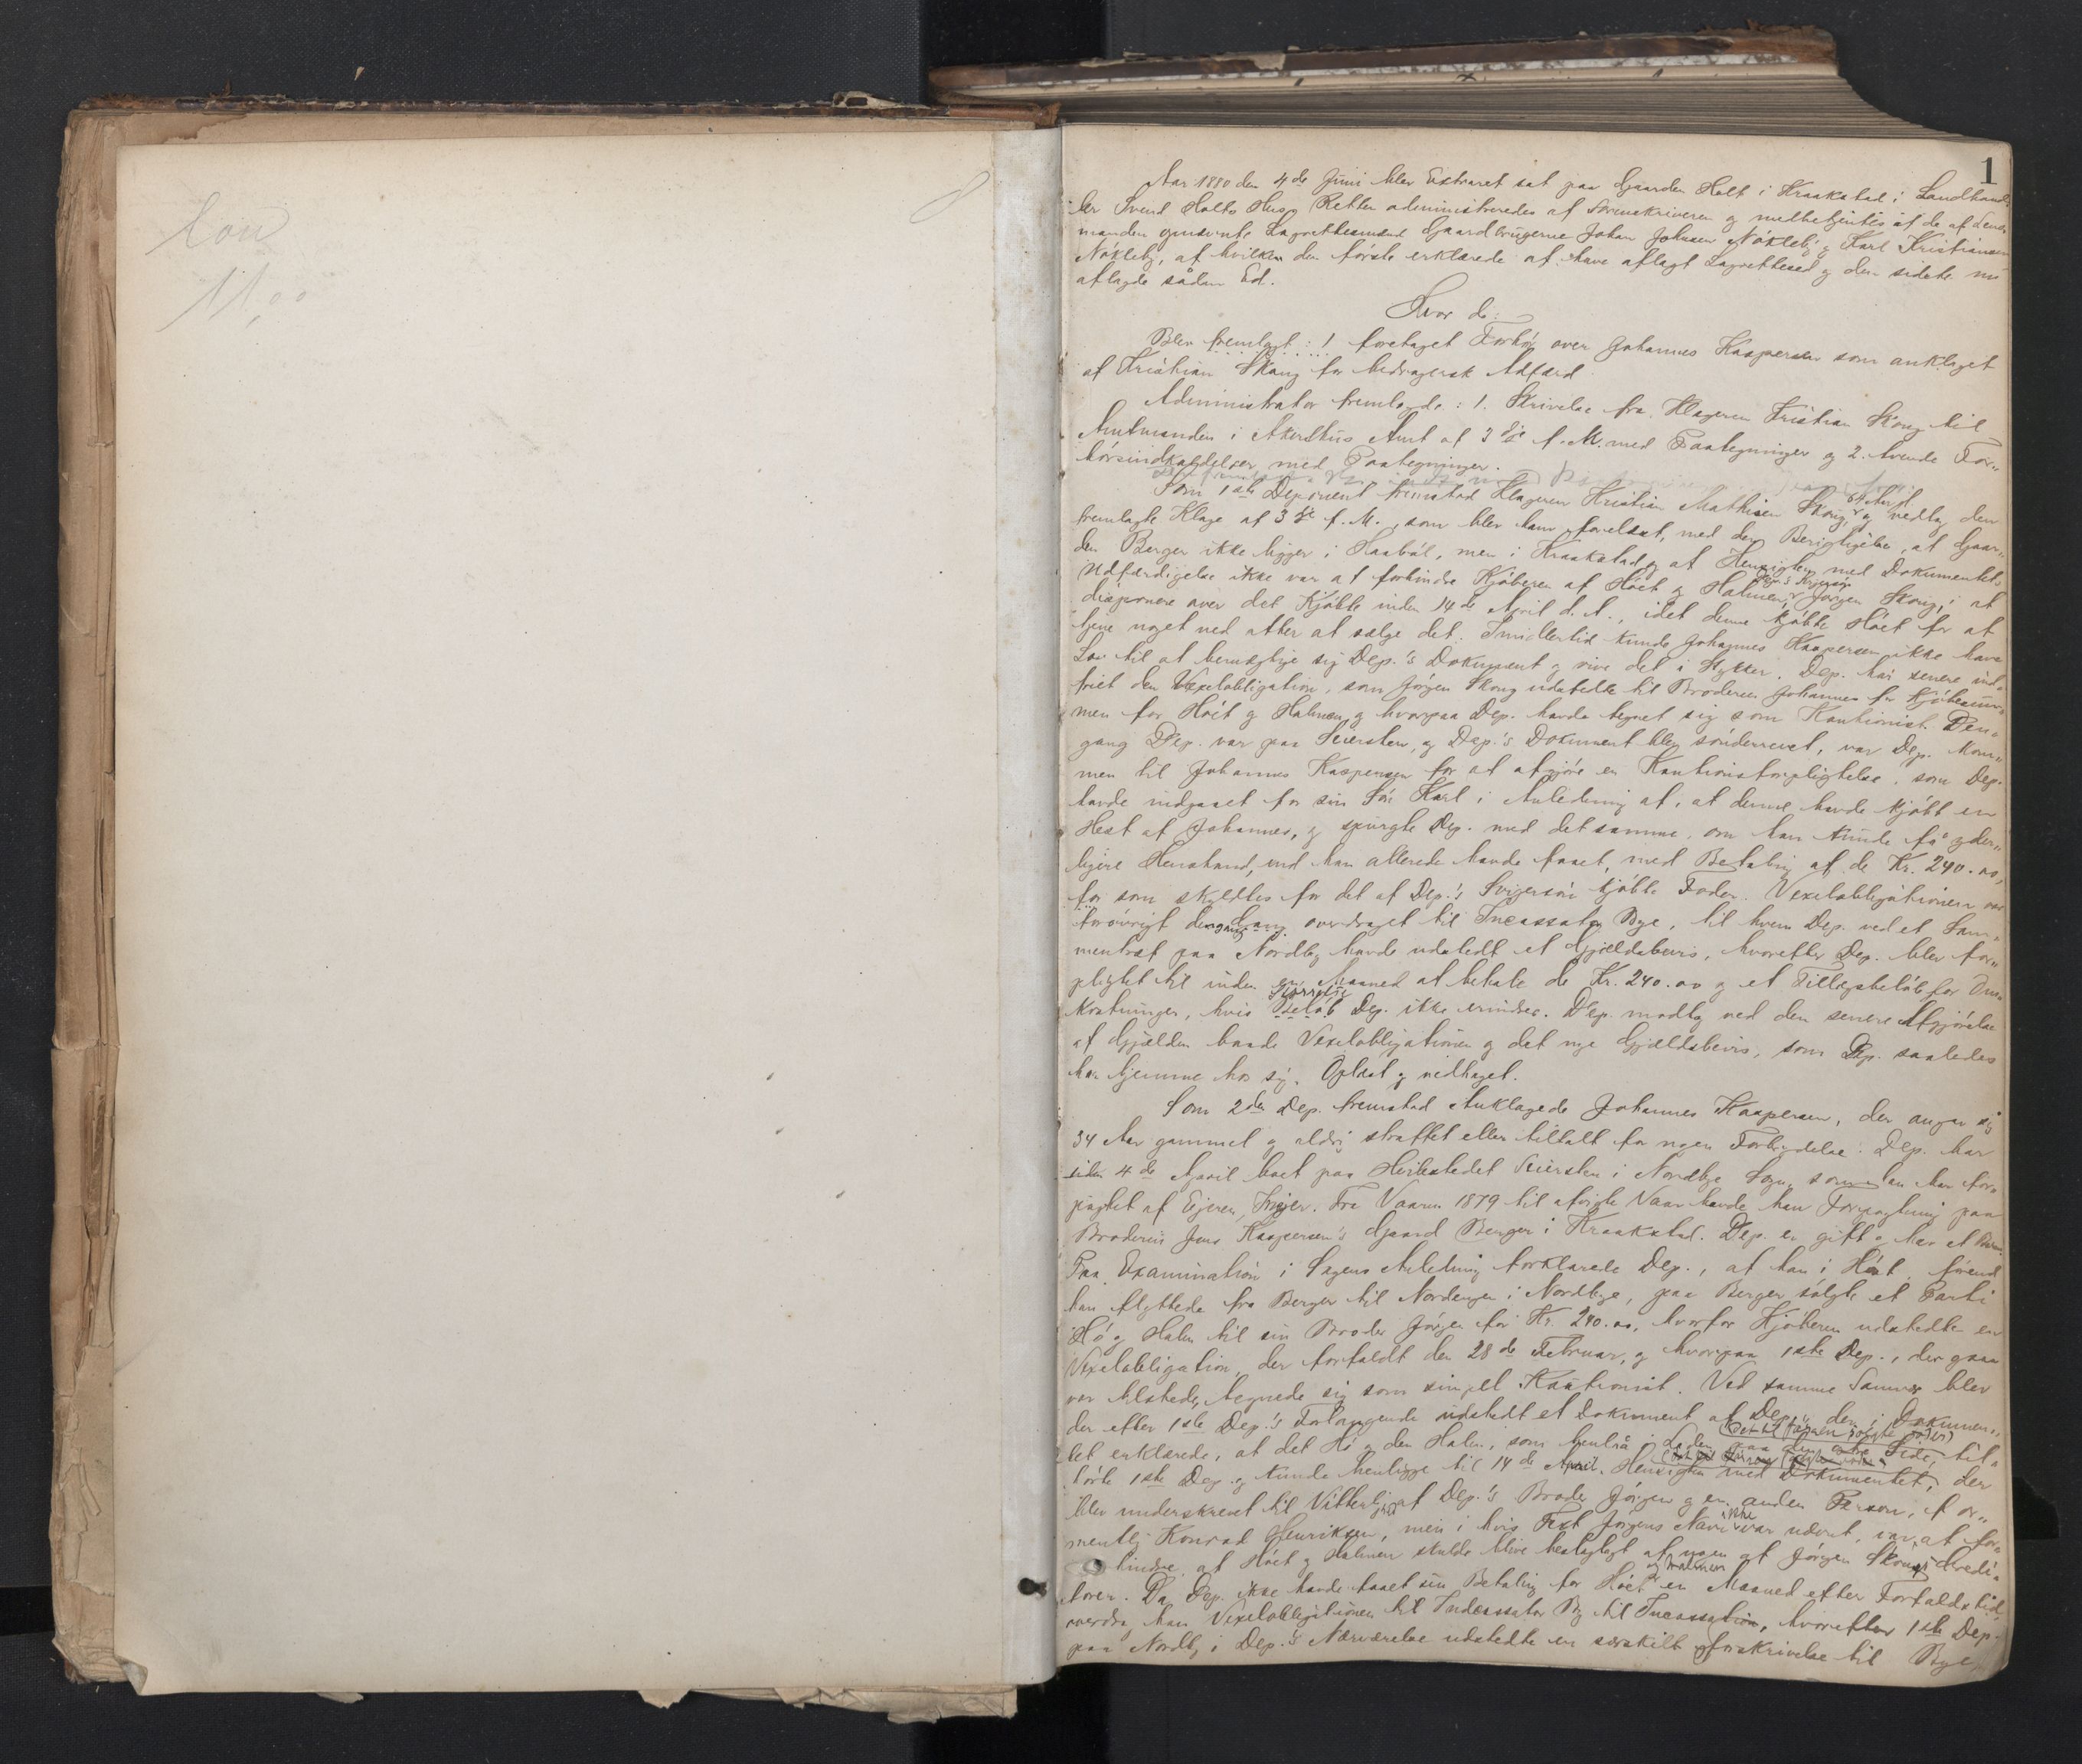 lou
11,00
1
Aar 1880 den 4de Juni blev Extraret sat paa Gaarden Holt i Kraakstad i Landhand-
ler Svend Holts Hus. Retten administreredes af Sorenskriveren og medbetjentes af de af Lens-
manden opnævnte Lagrettesmænd Gaardbrugerne Johan Johnsen Nökleby og Karl Kristiansen
Nökleby, af hvilken den förste erklærede at have aflagt Lagretteed og den sidste nu
aflagde sådan Ed.
Hvor da:
Blev fremlagt: 1 foretaget Forhör over Johannes Kaspersen som anklaget
af Kristian Skaug for bedragersk Adfærd.
Administrator fremlagde: 1. Skrivelse fra Klageren Kristian Skoug til
Amtmanden i Akershus Amt af 3die f. M. med Paategninger og 2. hvende For-
hörsindkaldelser med Paategninger.
Som 1ste Deponent fremstod Klageren Kristian Mathisen Skoug, og vedtog den
fremlagte Klage af 3die f. M., som blev ham forelæst, med den Berigtigelse, at Gaar-
den Berger ikke ligger i Haaböl, men i Kraakstad, og at Hensigten med Dokumentets
Udfærdigelse ikke var at forhindre Kjöberen af Höet og Halmen, Dep.'s Svigersön Jörgen Skoug, i at
disponere over det Kjöbte inden 14de April d. A., idet denne kjöbte Höet for at
tjene noget ved atter at sælge det. Imidlertid kunde Johannes Kaspersen ikke have
Lov til at bemægtige sig Dep.'s Dokument og rive det i Stykker. Dep. har senere ind-
friet den Vexelobligation, som Jörgen Skoug udstedte til Broderen Johannes for Kjöbesum-
men for Höet og Halmen, og hvorpaa Dep. havde tegnet sig som Kautionist. Den-
gang Dep. var paa Seiersten, og Dep.'s Dokument blev sönderrevet, var Dep. kom-
men til Johannes Kaspersen for at afgjöre en Kautionsforpligtelse, som Dep.
havde indgaaet for sin Sön Karl i Anledning af, at denne havde kjöbt en
Hest af Johannes, og spurgte Dep. med det samme, om han kunde få yder-
ligere Henstand, end han allerede havde faaet, med Betaling af de Kr. 240.00,
for som skyldtes for det af Dep.'s Svigersön kjöbte Foder. Vexelobligationen var
forövrigt dengang overdraget til Incassator Bye, til hvem Dep. ved et Sam-
mentræf paa Nordby havde udstedt et Gjældsbevis, hvorefter Dep. blev for-
pligtet til inden en Maaned at betale de Kr. 240.00 og et Tillægsbelöb for Om-
kostninger, hvis Störrelse Belöb Dep. ikke erindrer. Dep. modtog ved den senere Afgjörelse
af Gjælden baade Vexelobligationen og det nye Gjældsbevis, som Dep. saaledes
har hjemme hos sig. Oplæst og vedtaget.
Som 2den Dep. fremstod Anklagede Johannes Kaspersen, der angav sig
34 Aar gammel og aldrig straffet eller tiltalt for nogen Forbrydelse. Dep. har
siden 4de April boet paa Hvilestedet Seiersten i Nordby Sogn, som han har for-
pagtet af Eieren. Fra Vaaren 1879 til afvigte Vaar havde han Forpagtning paa
Broderens Jens Kaspersen's Gaard Berger i Kraakstad. Dep. er gift og har et Barn.
Paa Examination i Sagens Anledning forklarede Dep., at han i Höst, förend
han flyttede fra Berger til Nordengen i Nordbye, paa Berger solgte et Parti
Hö og Halm til sin Broder Jörgen for Kr. 240.00, hvorfor Kjöberen udstedte en
Vexelobligation, der forfaldt den 28de Februar, og hvorpaa 1ste Dep., der
var tilstede, tegnede sig som simpel Kautionist. Ved samme blev
der efter 1ste Dep.'s Forlangende udstedt et Dokument af Dep., der i Dokumen-
tet erklærede, at det Hö og den Halm, som henlaa i Laden paa den ene Side, til-
hörte 1ste Dep. og kunde henligge til 14de April. Hensigten med Dokumentet, der
blev underskrevet til Vitterlighed af Dep.'s Broder Jörgen og en anden Person,
mentlig Konrad Henriksen, men i hvis Text Jörgens Navn ikke var nævnt, var, at for-
hindre, at Höet og Halmen skulde blive beslaglagt af nogen af Jörgen Skougs Kredi-
torer. Da Dep. ikke havde faaet sin Betaling for Höet og Halmen en Maaned efter Forfaldstid,
overdrog han Vexelobligationen til Indcassator By til Incassation, hvorefter 1ste Dep.
paa Nordby i Dep.'s Nærværelse udstedte en særskilt Forskrivelse til Bye